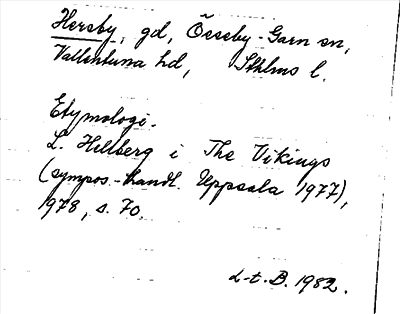 Hersby, gd, Össeby-Garn sn,
Vallentuna hd, Sthlms l.
Etymologi.
L. Hellberg i The Vikings
(sympos.-handl. Uppsala 1977),
1978, s. 70.
L-t. B. 1982.